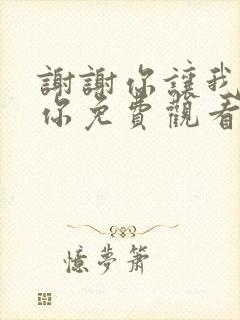 謝謝你讓我
你免費觀看
憶夢蕭